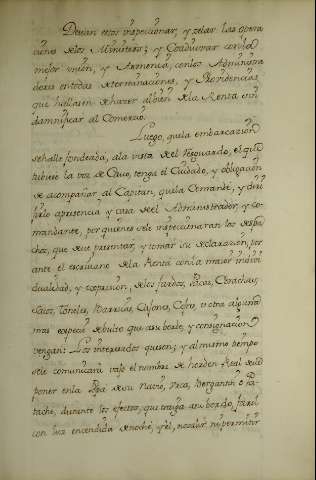 Devian estos inspeccionar, y zelar las opera
ciones de los Ministros; y Coadiuvar con la
mejor union, y Armonia, con los Administra
dores en todas determinaciones, y Providencias
que hallasen de hacer al bien de la Renta sin
damnificar al Comercio.
Luego, que la embarcacion
se halle fondeada, a la vista del Resguardo, el que
tubiese la voz de Cavo, tenga el Cuidado, y obligacion
de acompañar al Capitan, que la Comande, y diri
girlo a presencia y casa del Administrador, y co-
mandante, por quienes se le inspeccionaran los despa
chos, que deve presentar, y tomar su declaracion, por
ante el escrivano de la Renta con la maior indivi
dualidad, y expresion, de los fardos, Pacas,
Cajas, Toneles, Barricas, Cajones, u otra alguna
mas especie de bulto que a su bordo, y consignacion
vengan: Los interesados quienes; y al mismo tiempo
se le comunicará vajo el nombre de horden Real
poner en la Popa de su Navio, Bergantin o Pa-
tache, durante los efectos, que traiga a su bordo, farol
con luz encendida de noche, y el, no salir, ni permitir